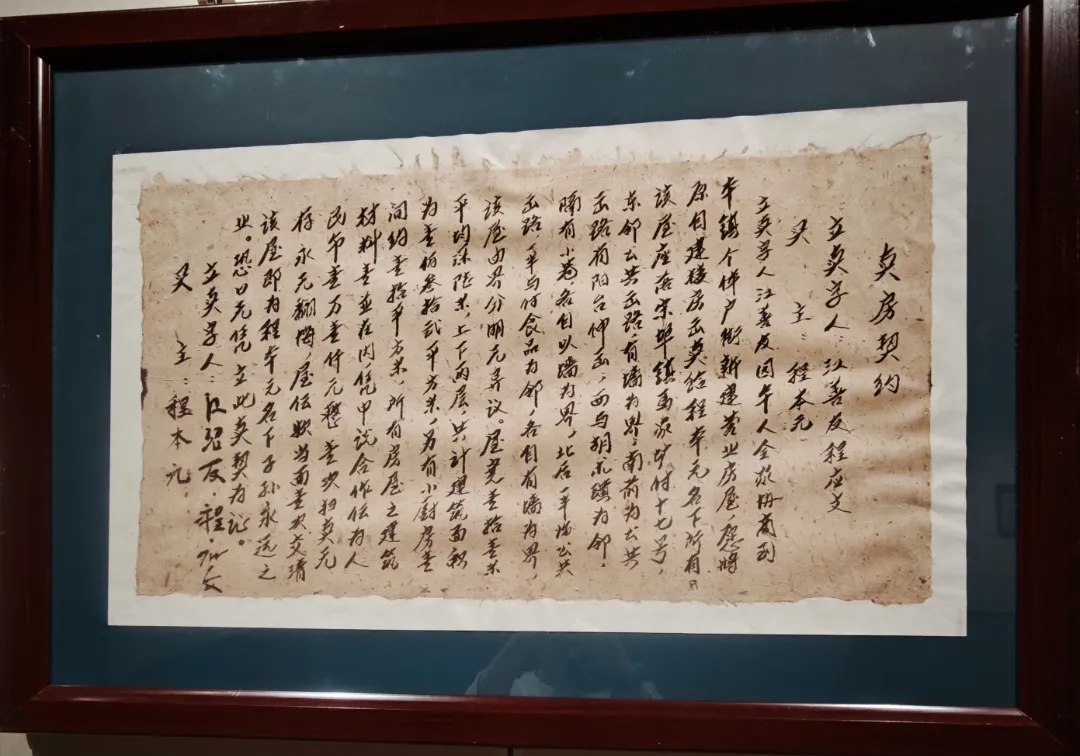 卖房契约
立卖字人：江善友程应文
买主：程本元
立卖字人江善友因本人全家册商到
本镇个体户街新建营业房屋，愿将
原自建楼房出卖给程本元名下所有。
该屋座落宗埠镇 付十七号，
东邻公共出路，有墙为界，南前为公共
出路有阳台伸出，西与胡 为邻，
隔有小巷，各自以墙为界，北后 公共
出路，平与付食品为邻，各自有墙为界，
该屋四界分明无异议。屋宽壹拾壹米
平均 米，上下两层，共计建筑面积
为壹佰叁拾贰平方米，另有小厨房壹
间约壹拾平方米，所有房屋之建筑
材料壹并在内，凭中说合作价为人
民币壹万壹仟元整壹次扫卖无
存永无翻悔，屋价款当面壹次交清
该屋即为程本元名下子孙永远之
业。恐口无凭立此卖契为证。
立卖字人：江善友·程应文
买主：程本元